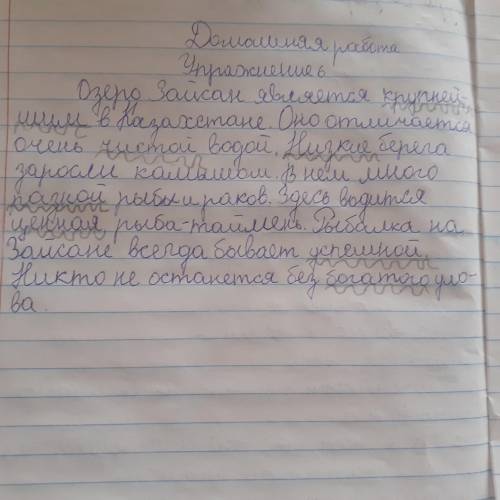 Домашняя работа
Упражнение 6
Озеро Зайсан является крупней-
шим в Казахстане. Оно отличается
очень чистой водой. Низкие берега
заросли камышом. В нём много
разной рыбы и раков. Здесь водится
ценная рыба-таймень. Рыбалка на
Зайсане всегда бывает успешной.
Никто не останется без богатого уло-
ва.